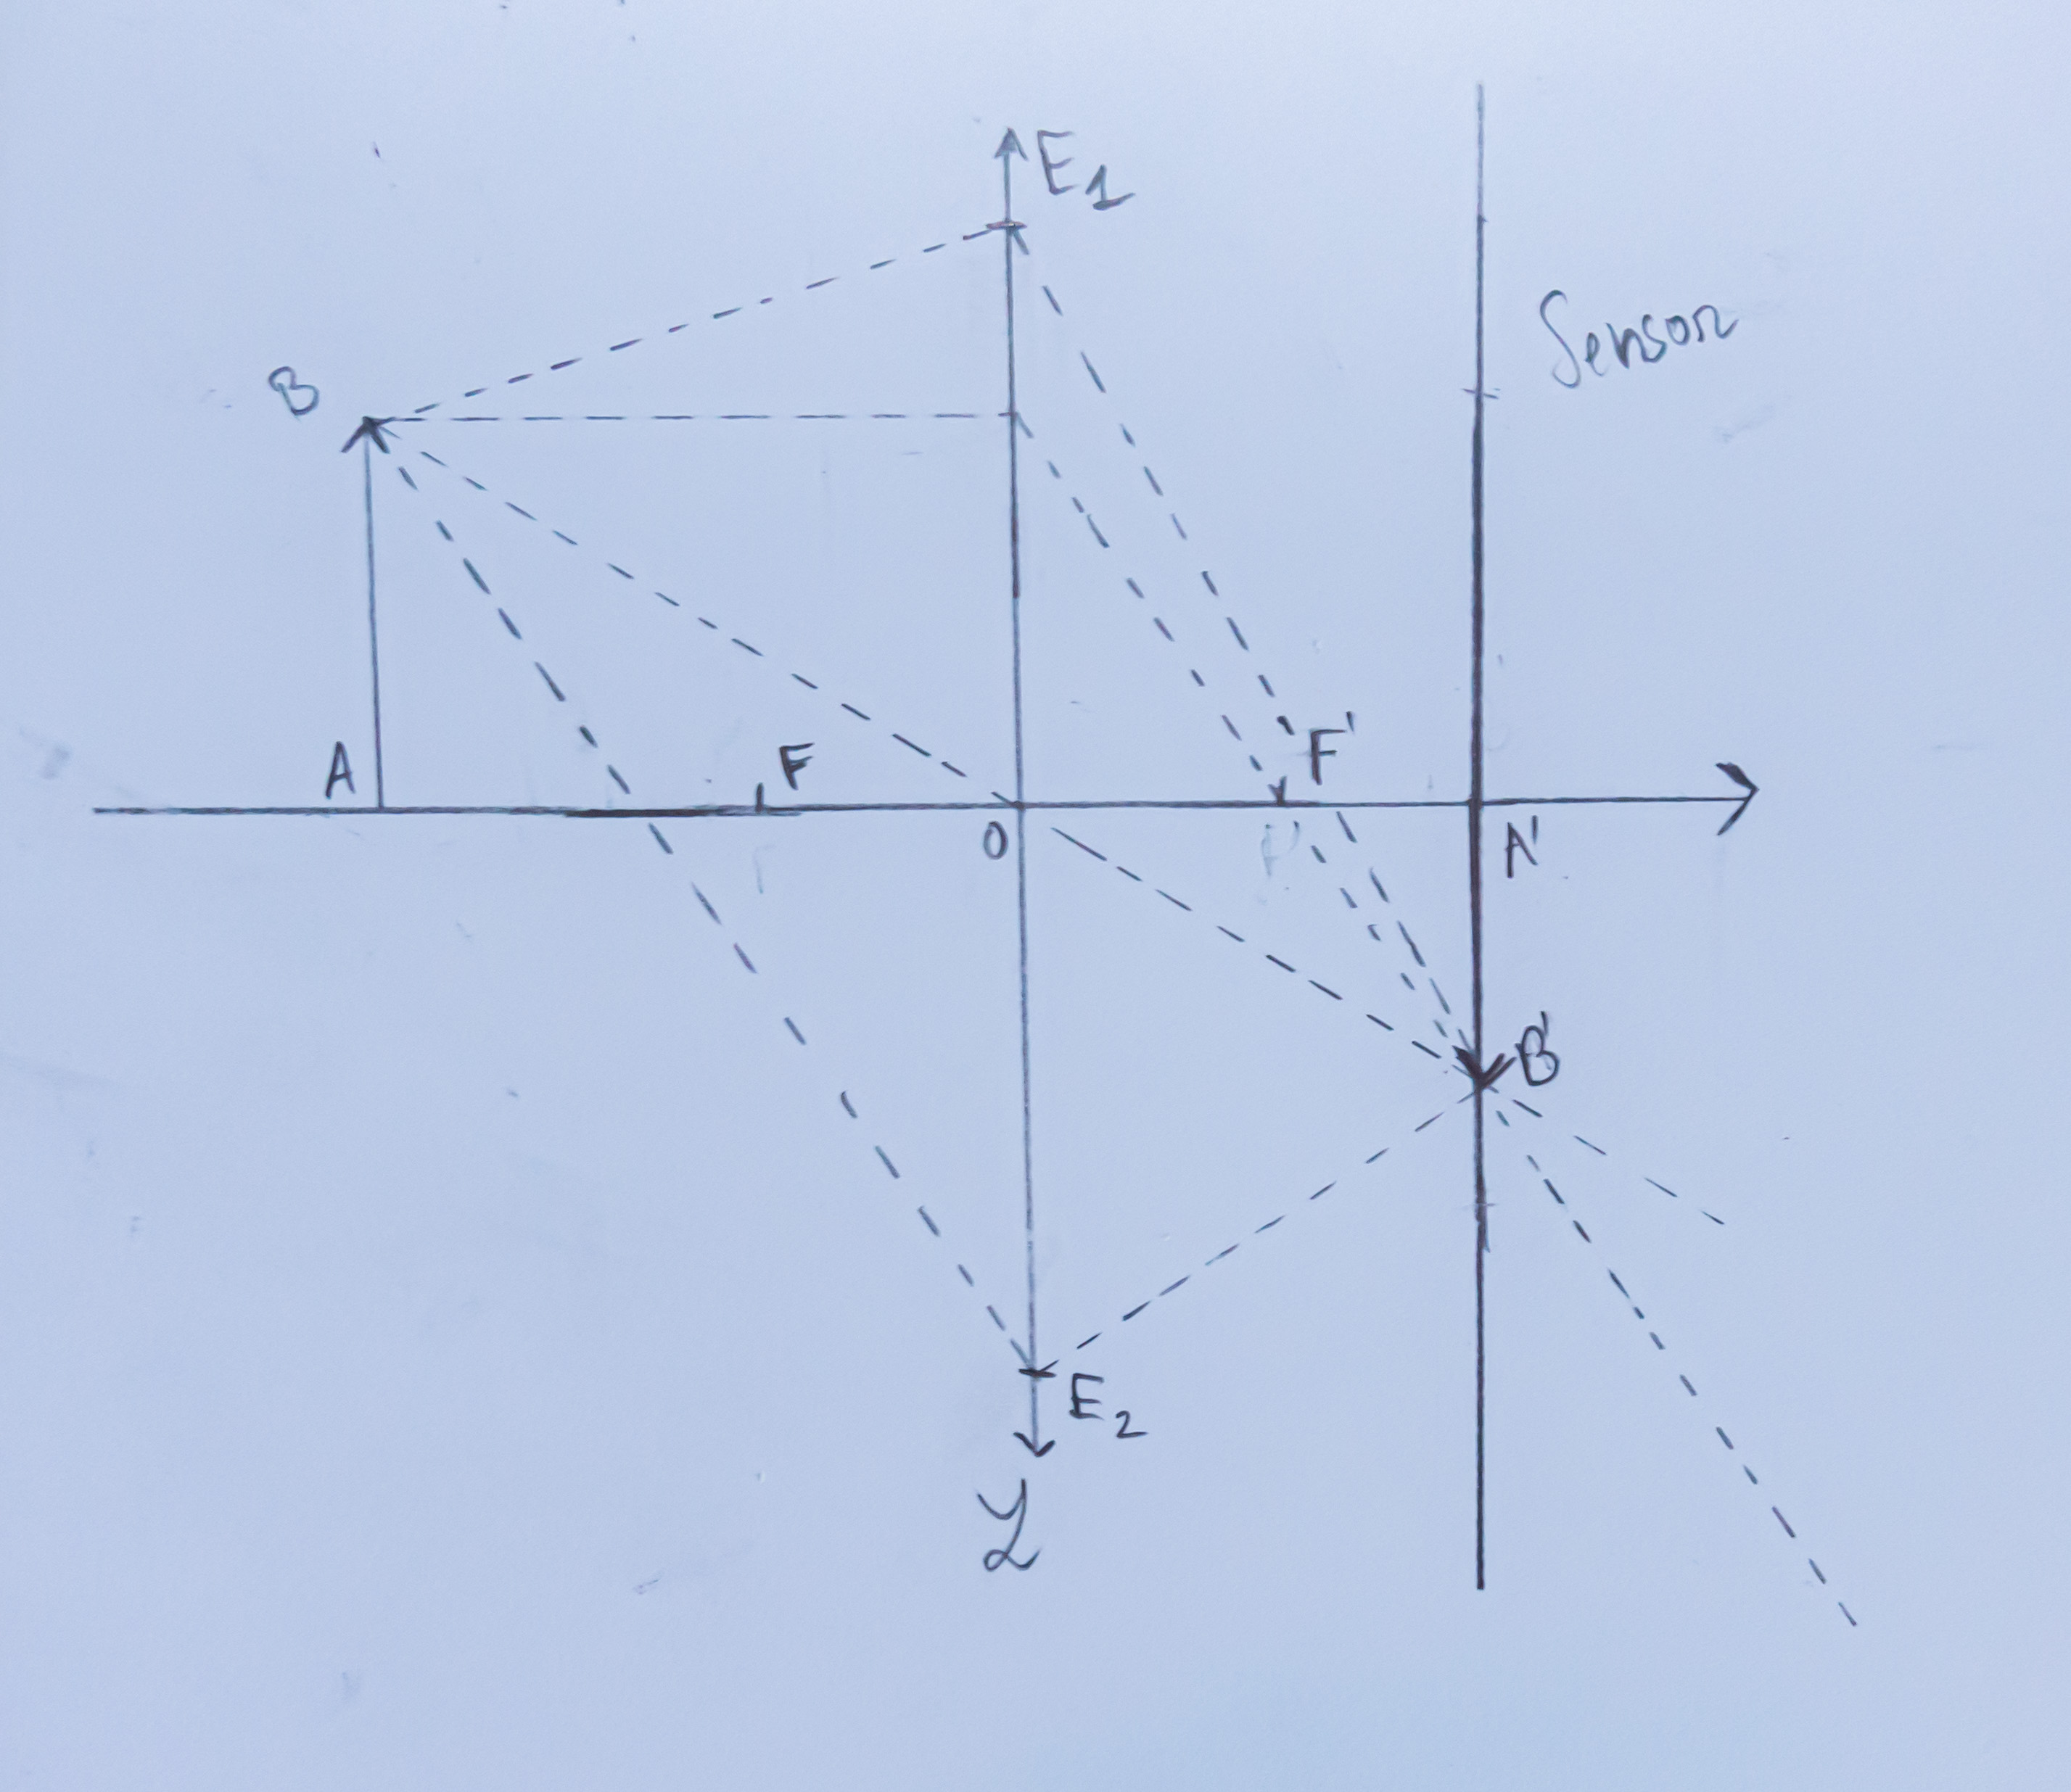 E1
Sensor
B
A
F
F'
O
F'
A'
B'
E2
L